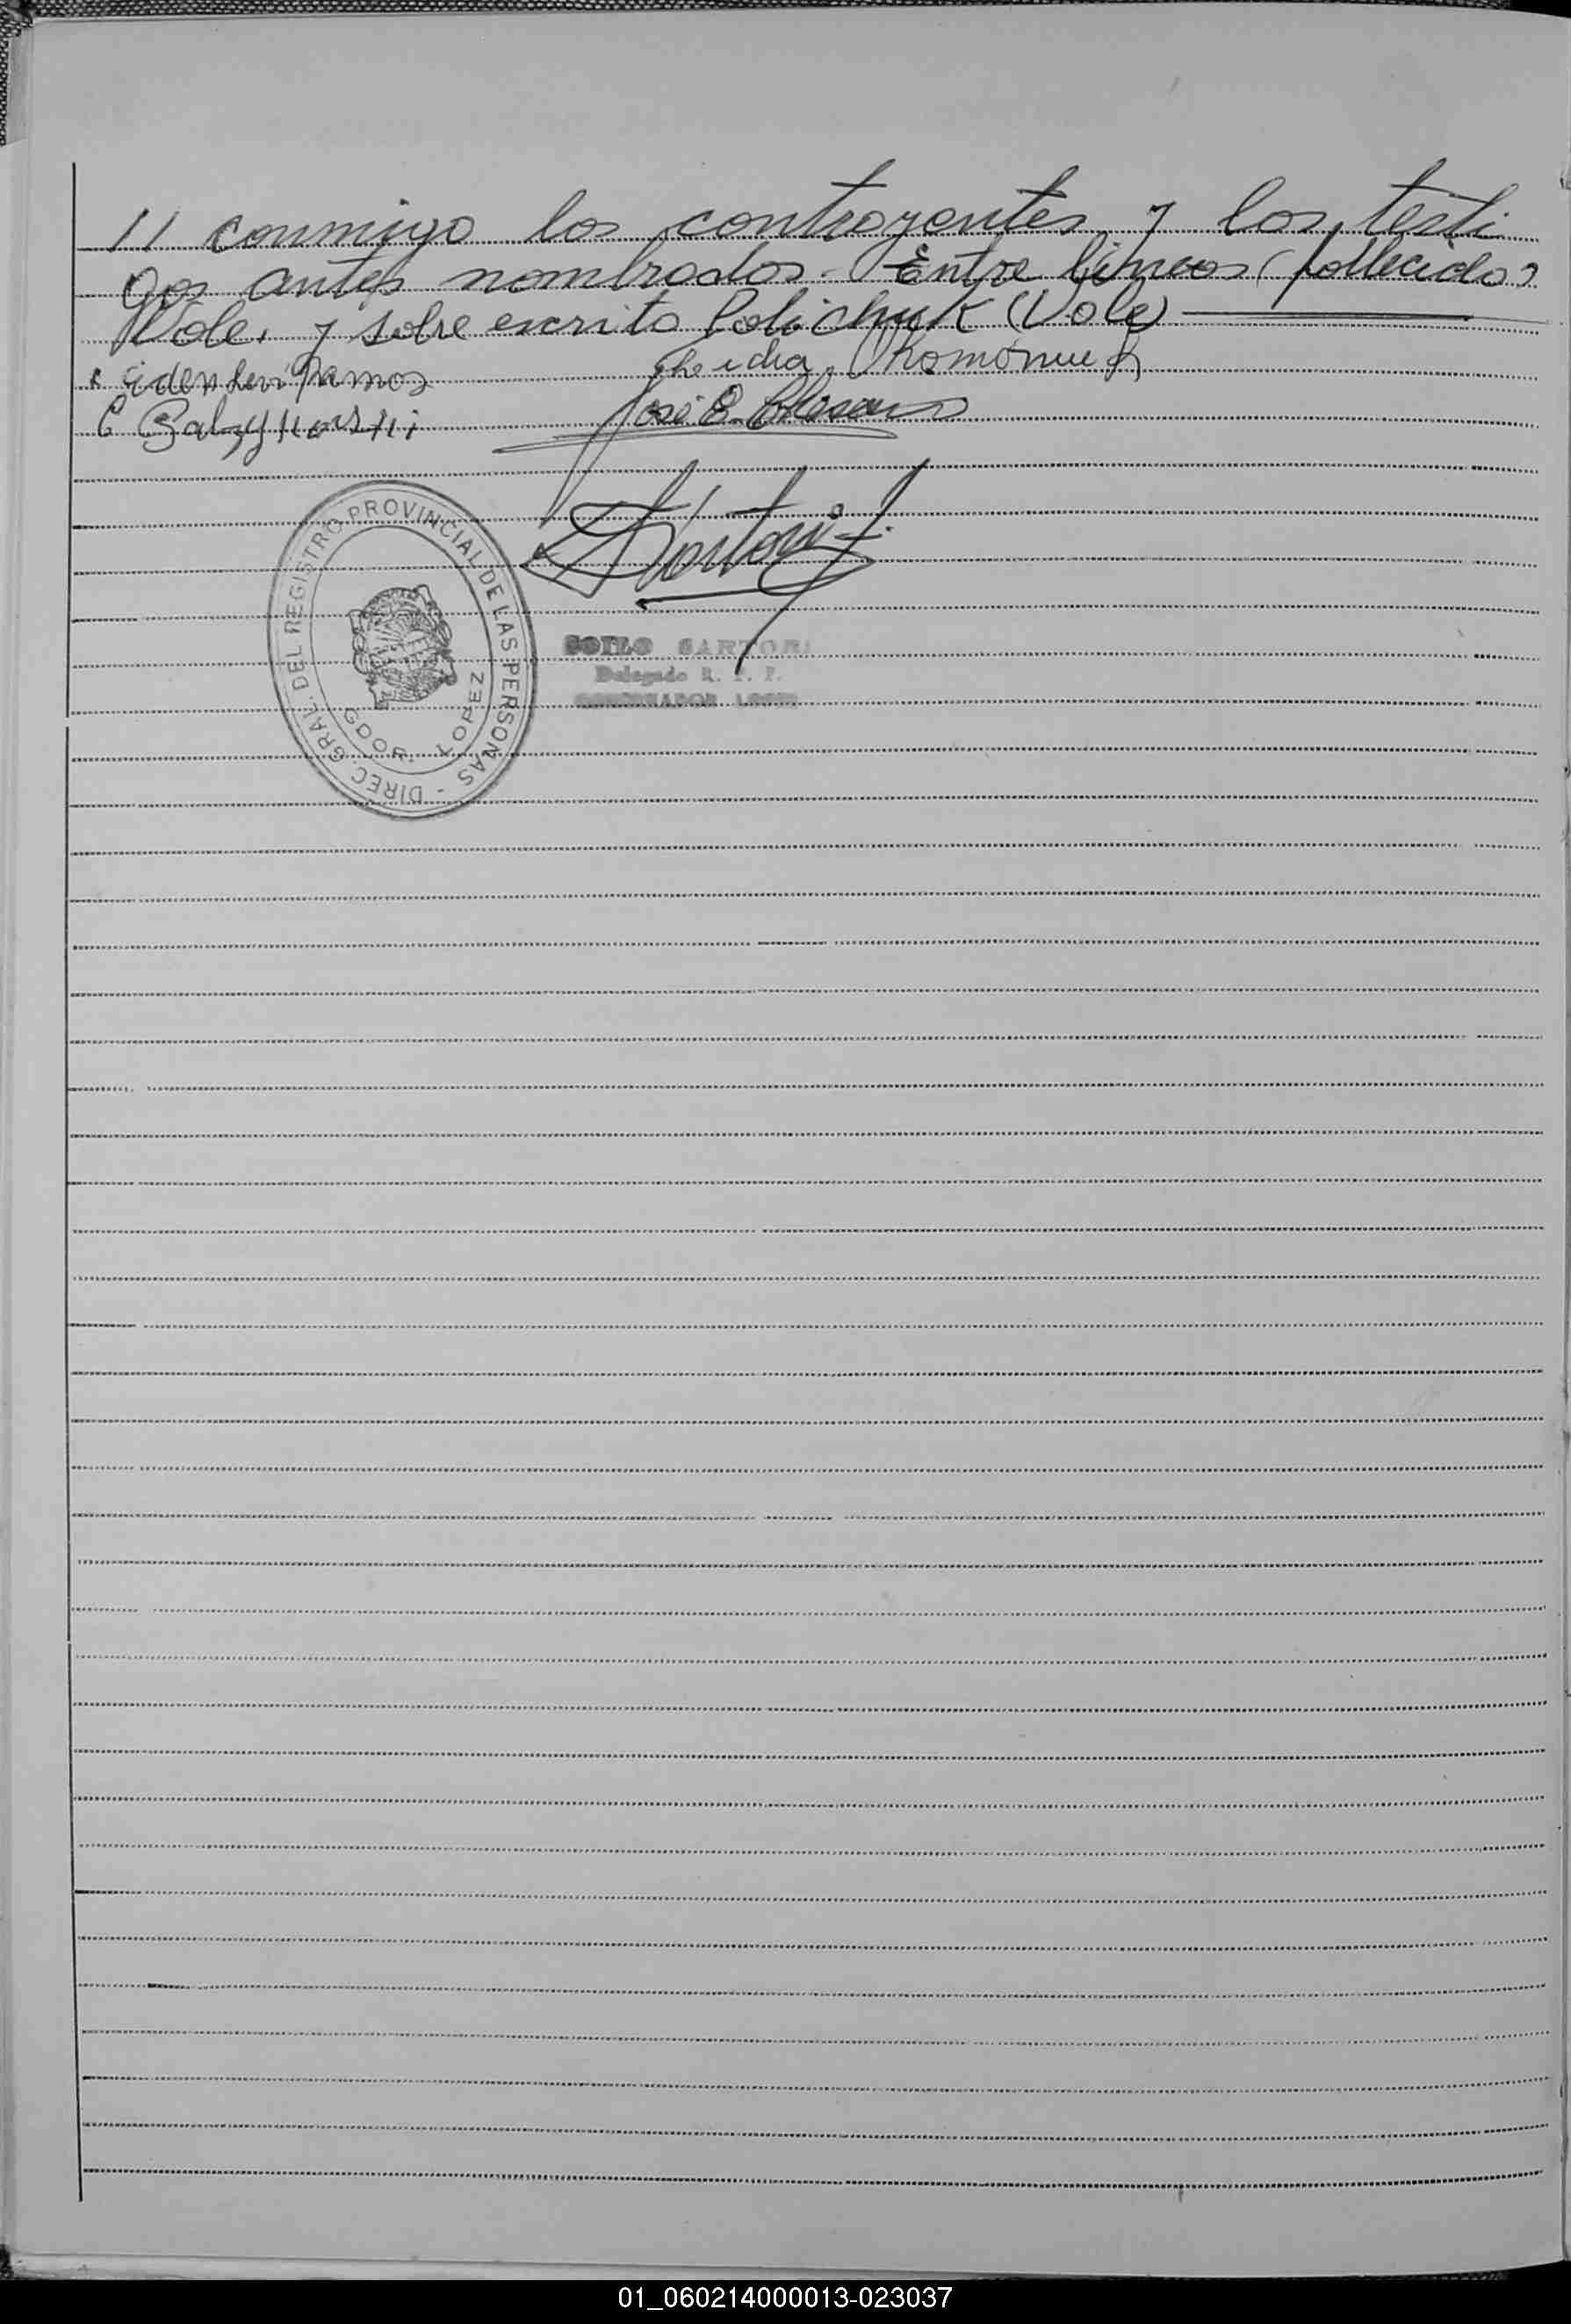 // conmigo los contrayentes y los testi
gos antes nombrados. Entre lineas (fallecido)
Vale. y sobre escrito Polichuk (Vale)
Ramos
José E.
Sartori
DIREC. GRAL. DEL REGISTRO PROVINCIAL DE LAS PERSONAS -
GDOR. LOPEZ
SOILO SARTORI
Delegado R. P. P.
GOBERNADOR LOPEZ
01_060214000013-023037